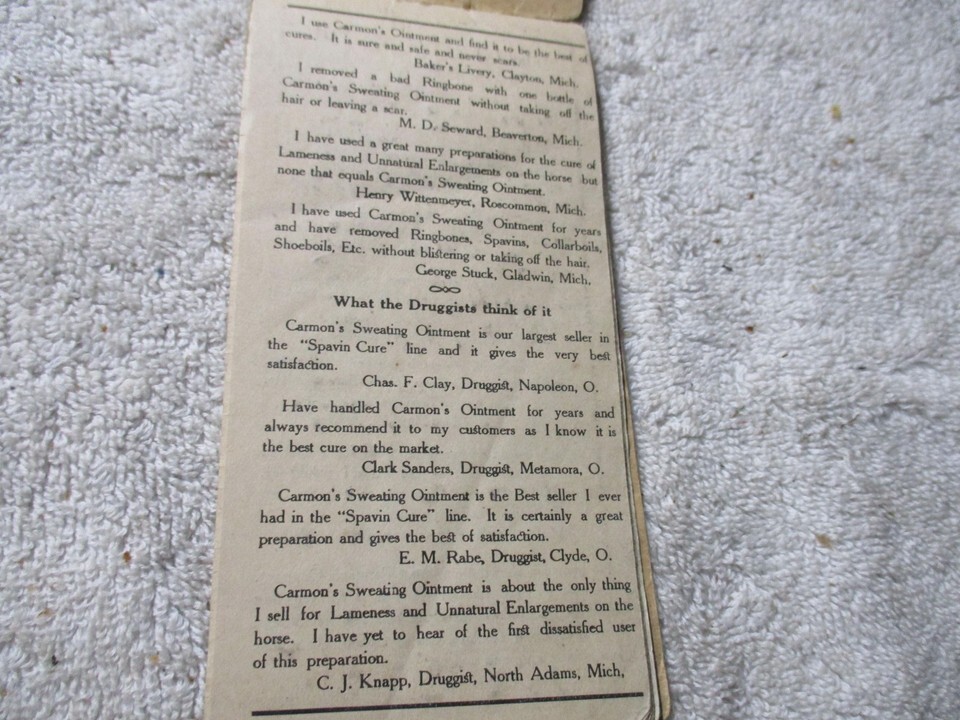 I use Carmon's Ointment and find it to be the best of
cures. It is sure and safe and never scars.
Baker's Livery, Clayton, Mich.
I removed a bad Ringbone with one bottle of
Carmon's Sweating Ointment without taking off the
hair or leaving a scar.
M. D. Seward, Beaverton, Mich.
I have used a great many preparations for the cure of
Lameness and Unnatural Enlargements on the horse but
none that equals Carmon's Sweating Ointment.
Henry Wittenmeyer, Roscommon, Mich.
I have used Carmon's Sweating Ointment for years
and have removed Ringbones, Spavins, Collarboils,
Shoeboils, Etc. without blistering or taking off the hair.
George Stuck, Gladwin, Mich,
What the Druggists think of it
Carmon's Sweating Ointment is our largest seller in
the "Spavin Cure" line and it gives the very best
satisfaction.
Chas. F. Clay, Druggist, Napoleon, O.
Have handled Carmon's Ointment for years and
always recommend it to my customers as I know it is
the best cure on the market.
Clark Sanders, Druggist, Metamora, O.
Carmon's Sweating Ointment is the Best seller I ever
had in the "Spavin Cure" line. It is certainly a great
preparation and gives the best of satisfaction.
E. M. Rabe, Druggist, Clyde, O.
Carmon's Sweating Ointment is about the only thing
I sell for Lameness and Unnatural Enlargements on the
horse. I have yet to hear of the first dissatisfied user
of this preparation.
C. J. Knapp, Druggist, North Adams, Mich,